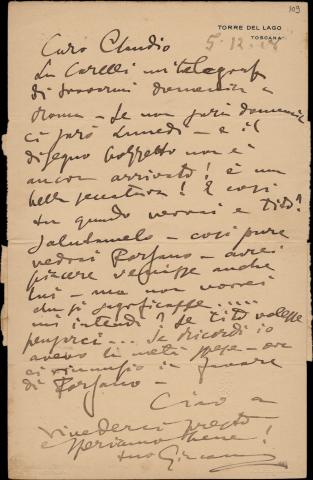 103
TORRE DEL LAGO
TOSCANA
5.12.18
Caro Claudio
La Carelli mi telegrafa
di trovarmi domenica a
Roma - Se non sarà domenica
ci sarò Lunedì - e il
disegno bozzetto non è
ancora arrivato! è una
bella seccatura! E così
tu quando verrai e Tito?
Salutamelo - così pure
vedrai Forzano - avrei
piacere venisse anche
lui - ma non vorrei
che si sacrificasse.....
mi intendi? Se Tito volesse
pensarci... Se ricordi io
avevo la metà spese - ora
ci rinunzio in favore
di Forzano -
Ciao a
rivederci presto
e speriamo bene!
tuo Giacomo